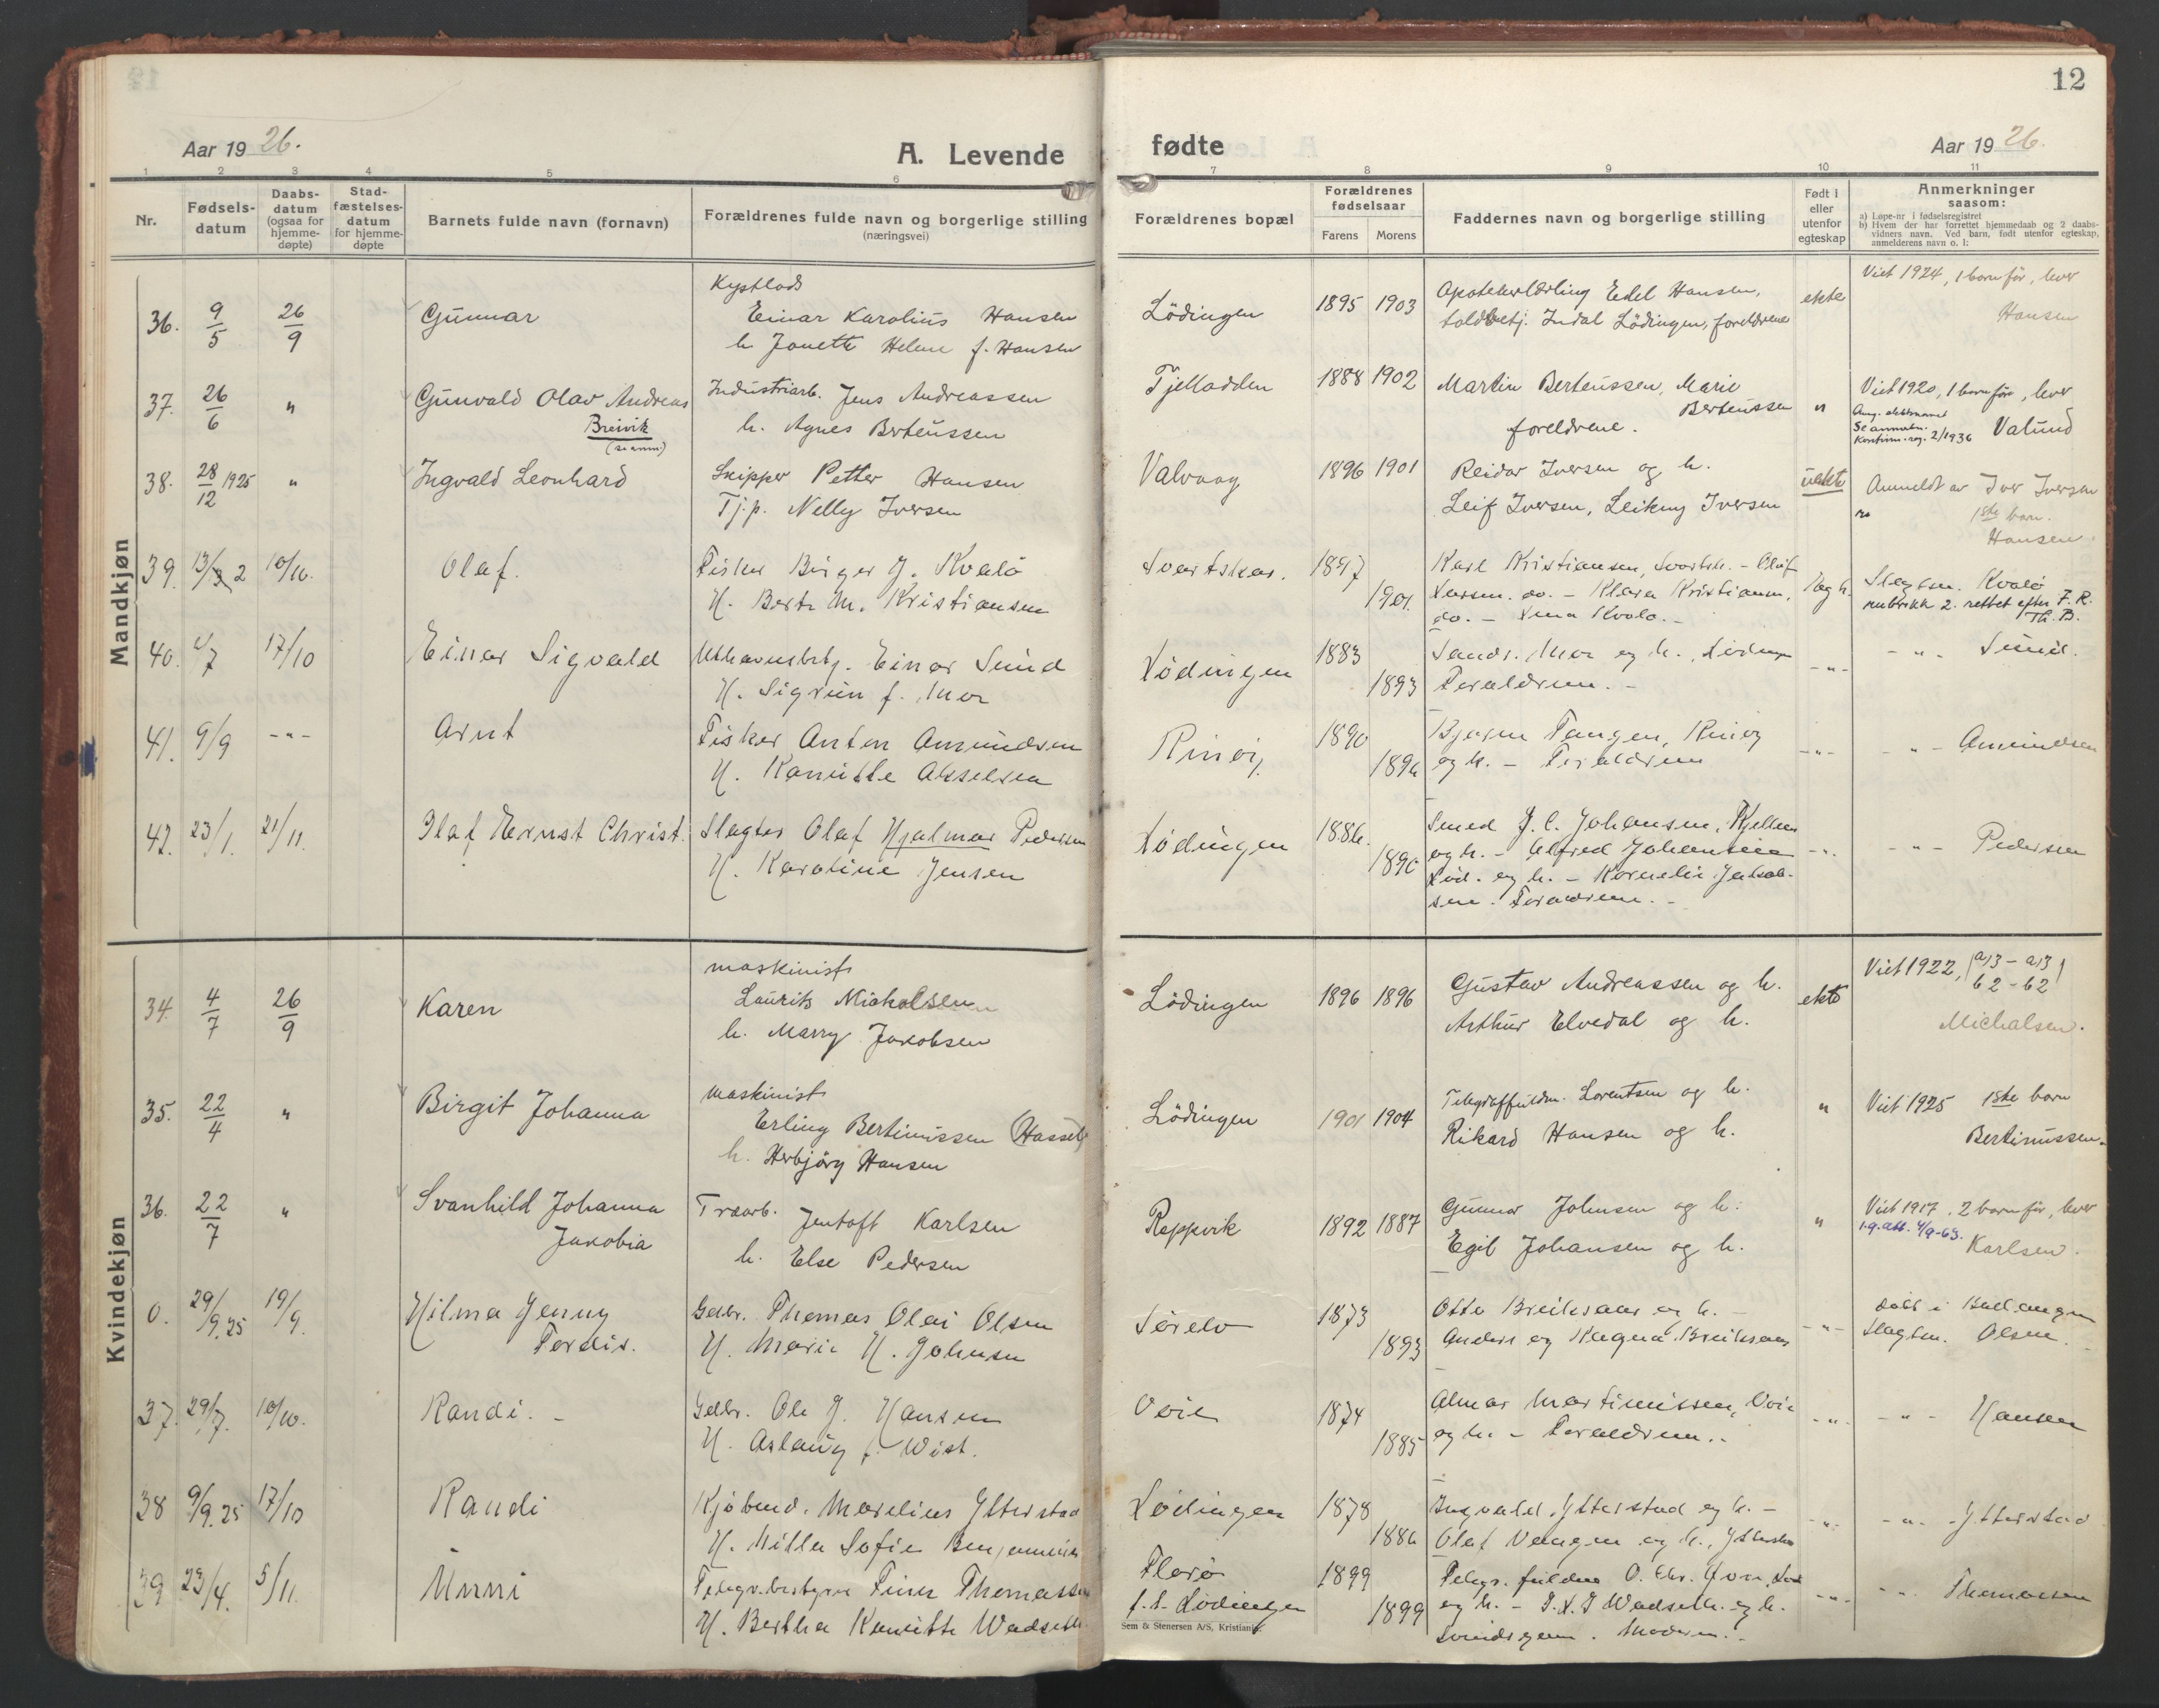 12
Aar 1926.
A. Levende
fødte
Aar 1926.
1 2 3 4 5 6 7 8 9 10 11
Nr.
Fødsels-
datum
Daabs-
datum
(ogsaa for
hjemme-
døpte)
Stad-
fæstelses-
datum
for hjemme-
døpte
Barnets fulde navn (fornavn)
Forældrenes fulde navn og borgerlige stilling
(næringsvei)
Forældrenes bopæl
Forældrenes
fødselsaar
Farens Morens
Faddernes navn og borgerlige stilling
Født i
eller
utenfor
egteskap
Anmerkninger
saasom:
a) Løpe-nr i fødselsregistret
b) Hvem der har forrettet hjemmedaab og 2 daabs-
vidners navn. Ved barn, født utenfor egteskap,
anmelderens navn o. l:
Mandkjøn
36. 9/5 26/9 Gunnar
Kystlods
Einar Karolius Hansen
h Janette Helene f. Hansen
Lödingen 1895 1903
Apotekerlærling Edel Hansen,
toldbetj. Indal Lödingen, foreldrene
ekte
Viet 1924, 1 barn för, lever
Hansen
37. 26/6 " Gunvald Olav Andreas
Breivik
(se anm)
Industriarb. Jens Andreassen
h. Agnes Berteussen
Tjelladden 1888 1902
Martin Berteussen, Marie
Berteussen
foreldrene.
"
Viet 1920, 1 barn för, lever
Ang. slektsnavnet
Se anmerkn.
Konfirm.reg. 2/1936 Valund
38. 28/12 1925 " Ingvald Leonhard
Skipper Petter Hansen
Tj.p. Nelly Iversen
Valvaag 1896 1901
Reidar Iversen og h.
Leif Iversen, Leikny Iversen
uekte
Anmeldt av Iver Iversen
1ste barn.
Hansen.
39. 13/2 10/10. Olaf.
Fisker Birger J. Kvalö
H. Berte M. Kristiansen
Svartskar. 1897 1901
Karl Kristiansen, Svartsk. - Oluf
Larsen. do. - Klara Kristiansen,
do. - Lina Kvalö. -
Slegtsn. Kvalö
rubrikk 2. rettet efter F. R.
Th. B.
40. 4/7 17/10 Einar Sigvald
Einar Sund
H. Sigrun f. Moe
Lödingen 1883 1893
Foreldrene. -
- " -
- " - Sund.
41. 9/9 - " - Arnt
Fisker Anton Amundsen
H. Kamille Akselsen
Rinöi,
1890
Bjarne Tangen, Rinöy
og h. - Foreldrene
- " -
- " - Amundsen
42. 23/1. 21/11. Olaf Ernst Christ.
Slagter Olaf Hjalmar Pedersen
H. Karoline Jensen
Lödingen 1886. 1890
Smed J. C. Johansen, Kjellen
og h. - Alfred Johansen
Löd. og h. - Kornelie Jakob-
sen. Foreldrene. -
- " -
- " - Pedersen
Kvindekjøn
34. 4/7 26/9 Karen
maskinist
Laurits Mickalsen
h. Marry Jakobsen
Lödingen 1896 1896
Gustav Andreassen og h.
Arthur Elvedal og h.
ekte
Viet 1922, (a)3 - a)3)
b 2 - b2
Michalsen.
35. 22/4 " Birgit Johanna
maskinist
Erling Bertinussen (Hassel)
h. Herbjörg Hansen
Lödingen 1901 1904
Telegraffuldm. Lorentsen og h.
Rikard Hansen og h.
"
Viet 1925 1ste barn
Bertinussen.
36. 22/7 " Svanhild Johanna
Jakobia
Træarb. Jentoft Karlsen
h. Else Pedersen
Reppvik 1892 1887
Gunnar Johnsen og h.
Egil Johansen og h.
"
Viet 1917. 2 barn för, lever
1.g. att. 4/9-63.
Karlsen.
0. 29/9.25 19/9. Hilma Jenny
Tordis.
Gdbr. Thomas Olai Olsen
H. Marie H. Johnsen
Sörelv 1873 1893
Otto Breiksaas og h. -
Anders og Magna Breiksaas
- " -
döbt i Ballangen
Slegtsn. Olsen.
37. 29/7. 10/10. Randi. -
Gdbr. Ole J. Hansen
H. Aslaug f. Wist.
Voie 1874 1885
Almar Martinussen, Voie
og h. - Foreldrene.
- " -
- " - Hansen
38 9/9.25 17/10 Randi
Kjöbmd. Marelius Ytterstad
H. Milla Sofie Benjaminsen
Lödingen 1878 1886
Ingvald Ytterstad og h. -
Olaf Vangen og h., Ytterstad
- " -
- " - Ytterstad
39 23/4. 5/11. Unni
Telegr.bestyrer Finn Thomassen
H. Berthe Kamitte Wadseth.
Florö
f.t. Lödingen
1899 1899
og h. - J. L. J Wadseth og h.
Moderen. -
- " -
- " - Thomassen
Sem & Stenersen A/S, Kristiania.